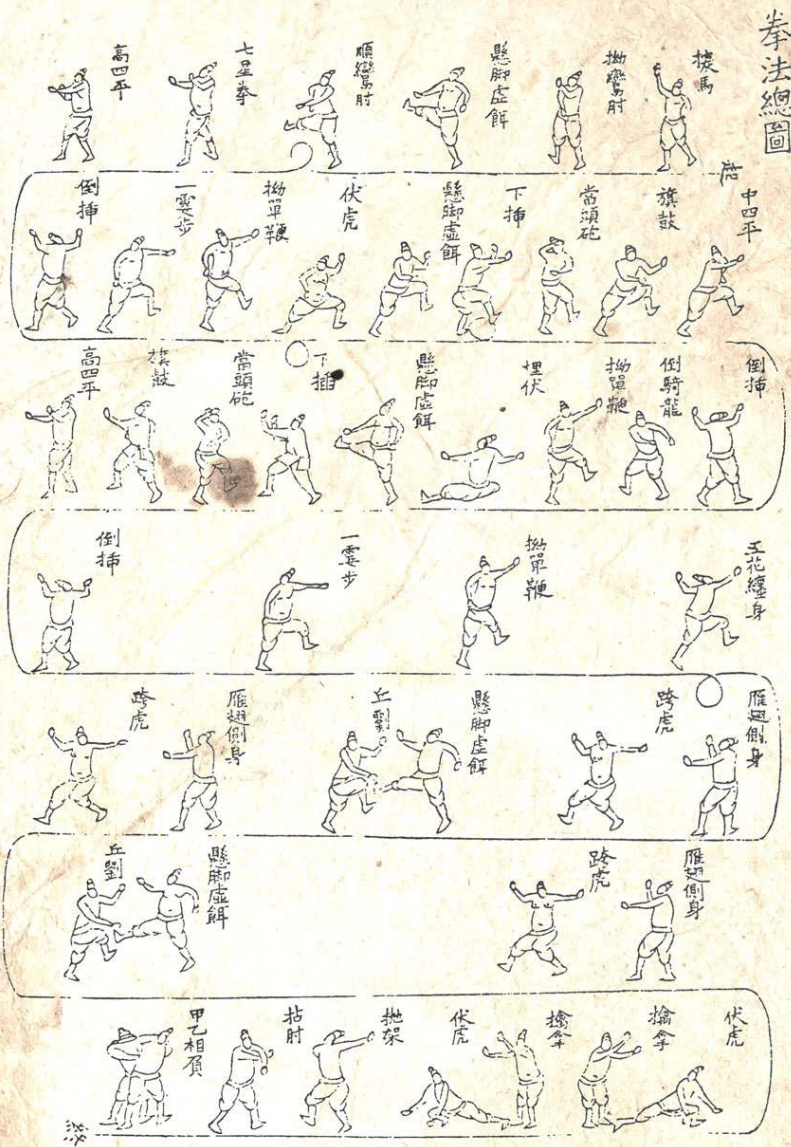 拳法總圖
探馬
拗鸞肘
懸脚虛餌
順鸞肘
七星拳
高四平
中四平
旗鼓
當頭砲
下揷
懸脚虛餌
伏虎
拗單鞭
一霎步
倒揷
倒揷
倒騎龍
拗單鞭
埋伏
懸脚虛餌
下插
當頭砲
旗鼓
高四平
五花纏身
拗單鞭
一霎步
倒揷
雁翅側身
跨虎
懸脚虛餌
丘劉
雁翅側身
跨虎
雁翅側身
跨虎
懸脚虛餌
丘劉
伏虎
擒拿
擒拿
伏虎
抛架
拈肘
甲乙相負